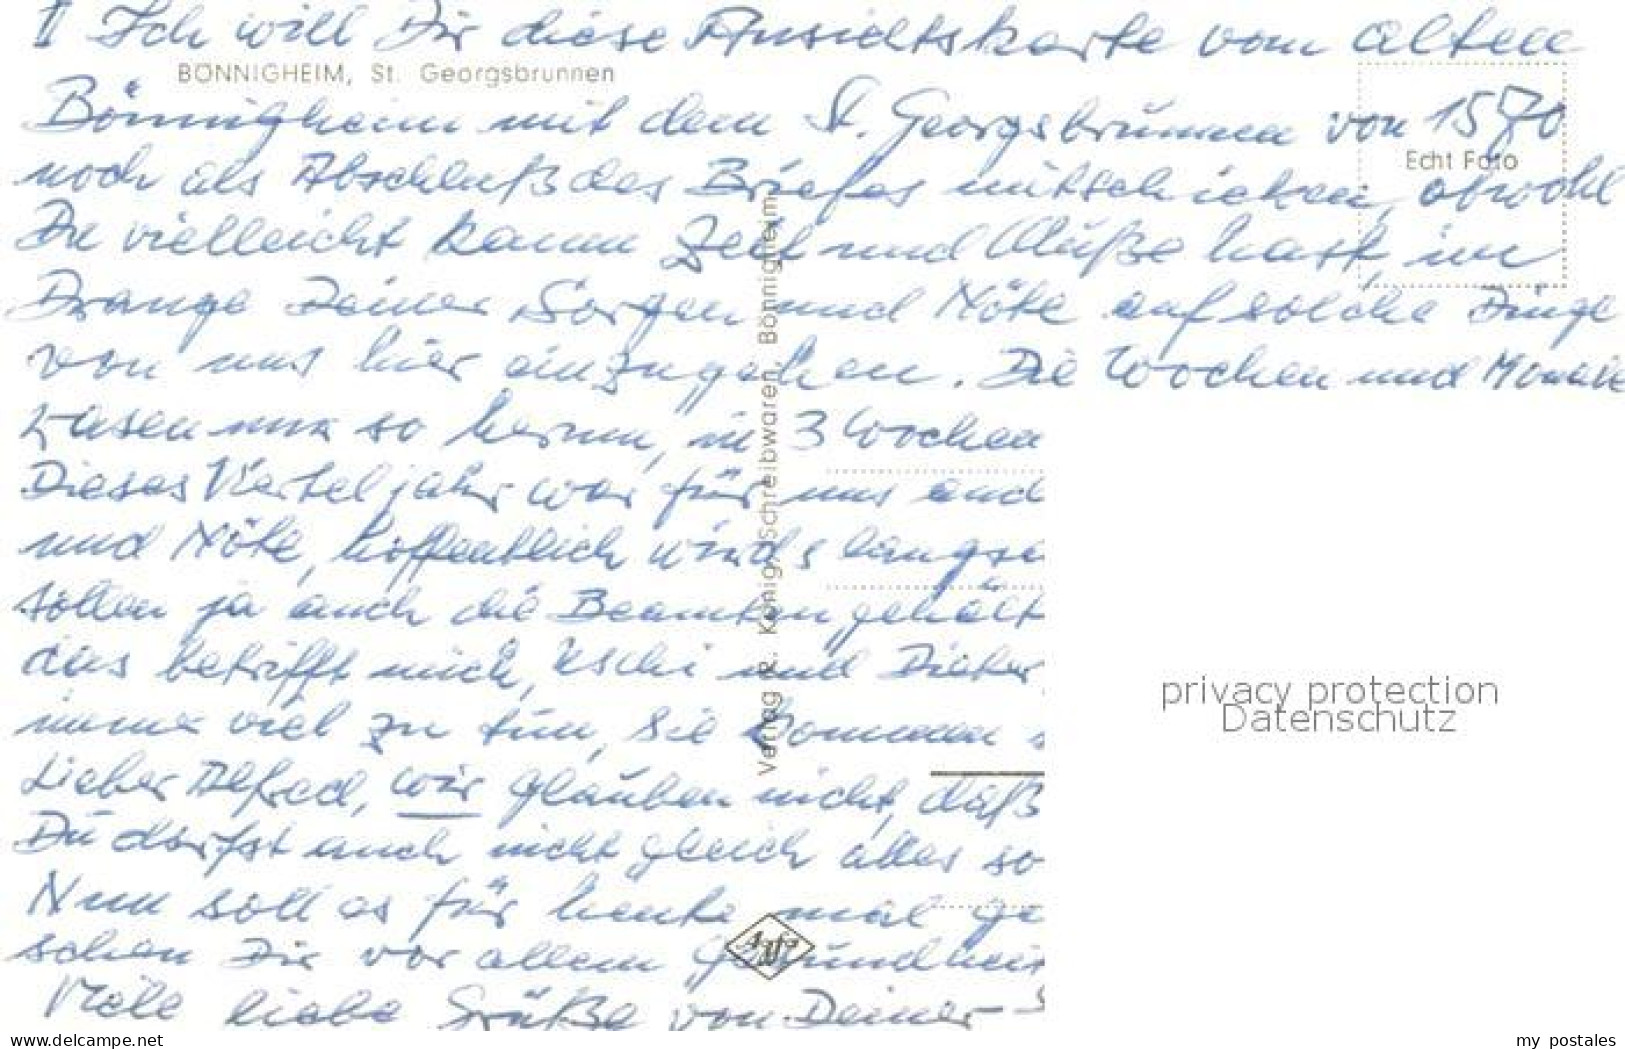 II Ich will Dir diese Ansichtskarte vom alten
BÖNNIGHEIM, St. Georgsbrunnen
Bönnigheim mit dem St. Georgsbrunnen von 1570
Echt Foto
noch als Abschluß des Briefes mitschicken, obwohl
Du vielleicht kaum Zeit und Muße hast, im
Drange Deiner Sorgen und Nöte auf solche Dinge
von uns hier einzugehen. Die Wochen und Monate
rasen nur so herum, in 3 Wochen
Dieses Vierteljahr war für uns auch
und Nöte, hoffentlich wird's langsa
sollen ja auch die Beamtengehält
das betrifft mich, Uschi und Dieter,
immer viel zu tun, sie kommen s
Lieber Alfred, wir glauben nicht, daß
Du darfst auch nicht gleich alles so
Nun soll es für heute mal ge
schen Dir vor allem Gesundheit
Viele liebe Grüße von Deiner
Verlag R. König, Schreibwaren, Bönnigheim
Agfa
privacy protection
Datenschutz
www.delcampe.net
my_postales